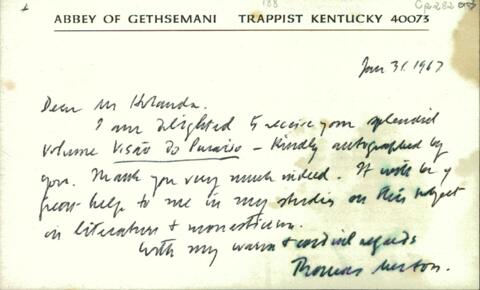 188
Cp 282
ABBEY OF GETHSEMANI TRAPPIST KENTUCKY 40073
Jan 31. 1967
Dear Mr Holanda.
I am delighted to receive your splendid
volume Visão do Paraiso - kindly autographed by
you. Thank you very much indeed. It will be of
great help to me in my studies on this subject
in literature & monasticism.
With my warm & cordial regards
Thomas Merton.